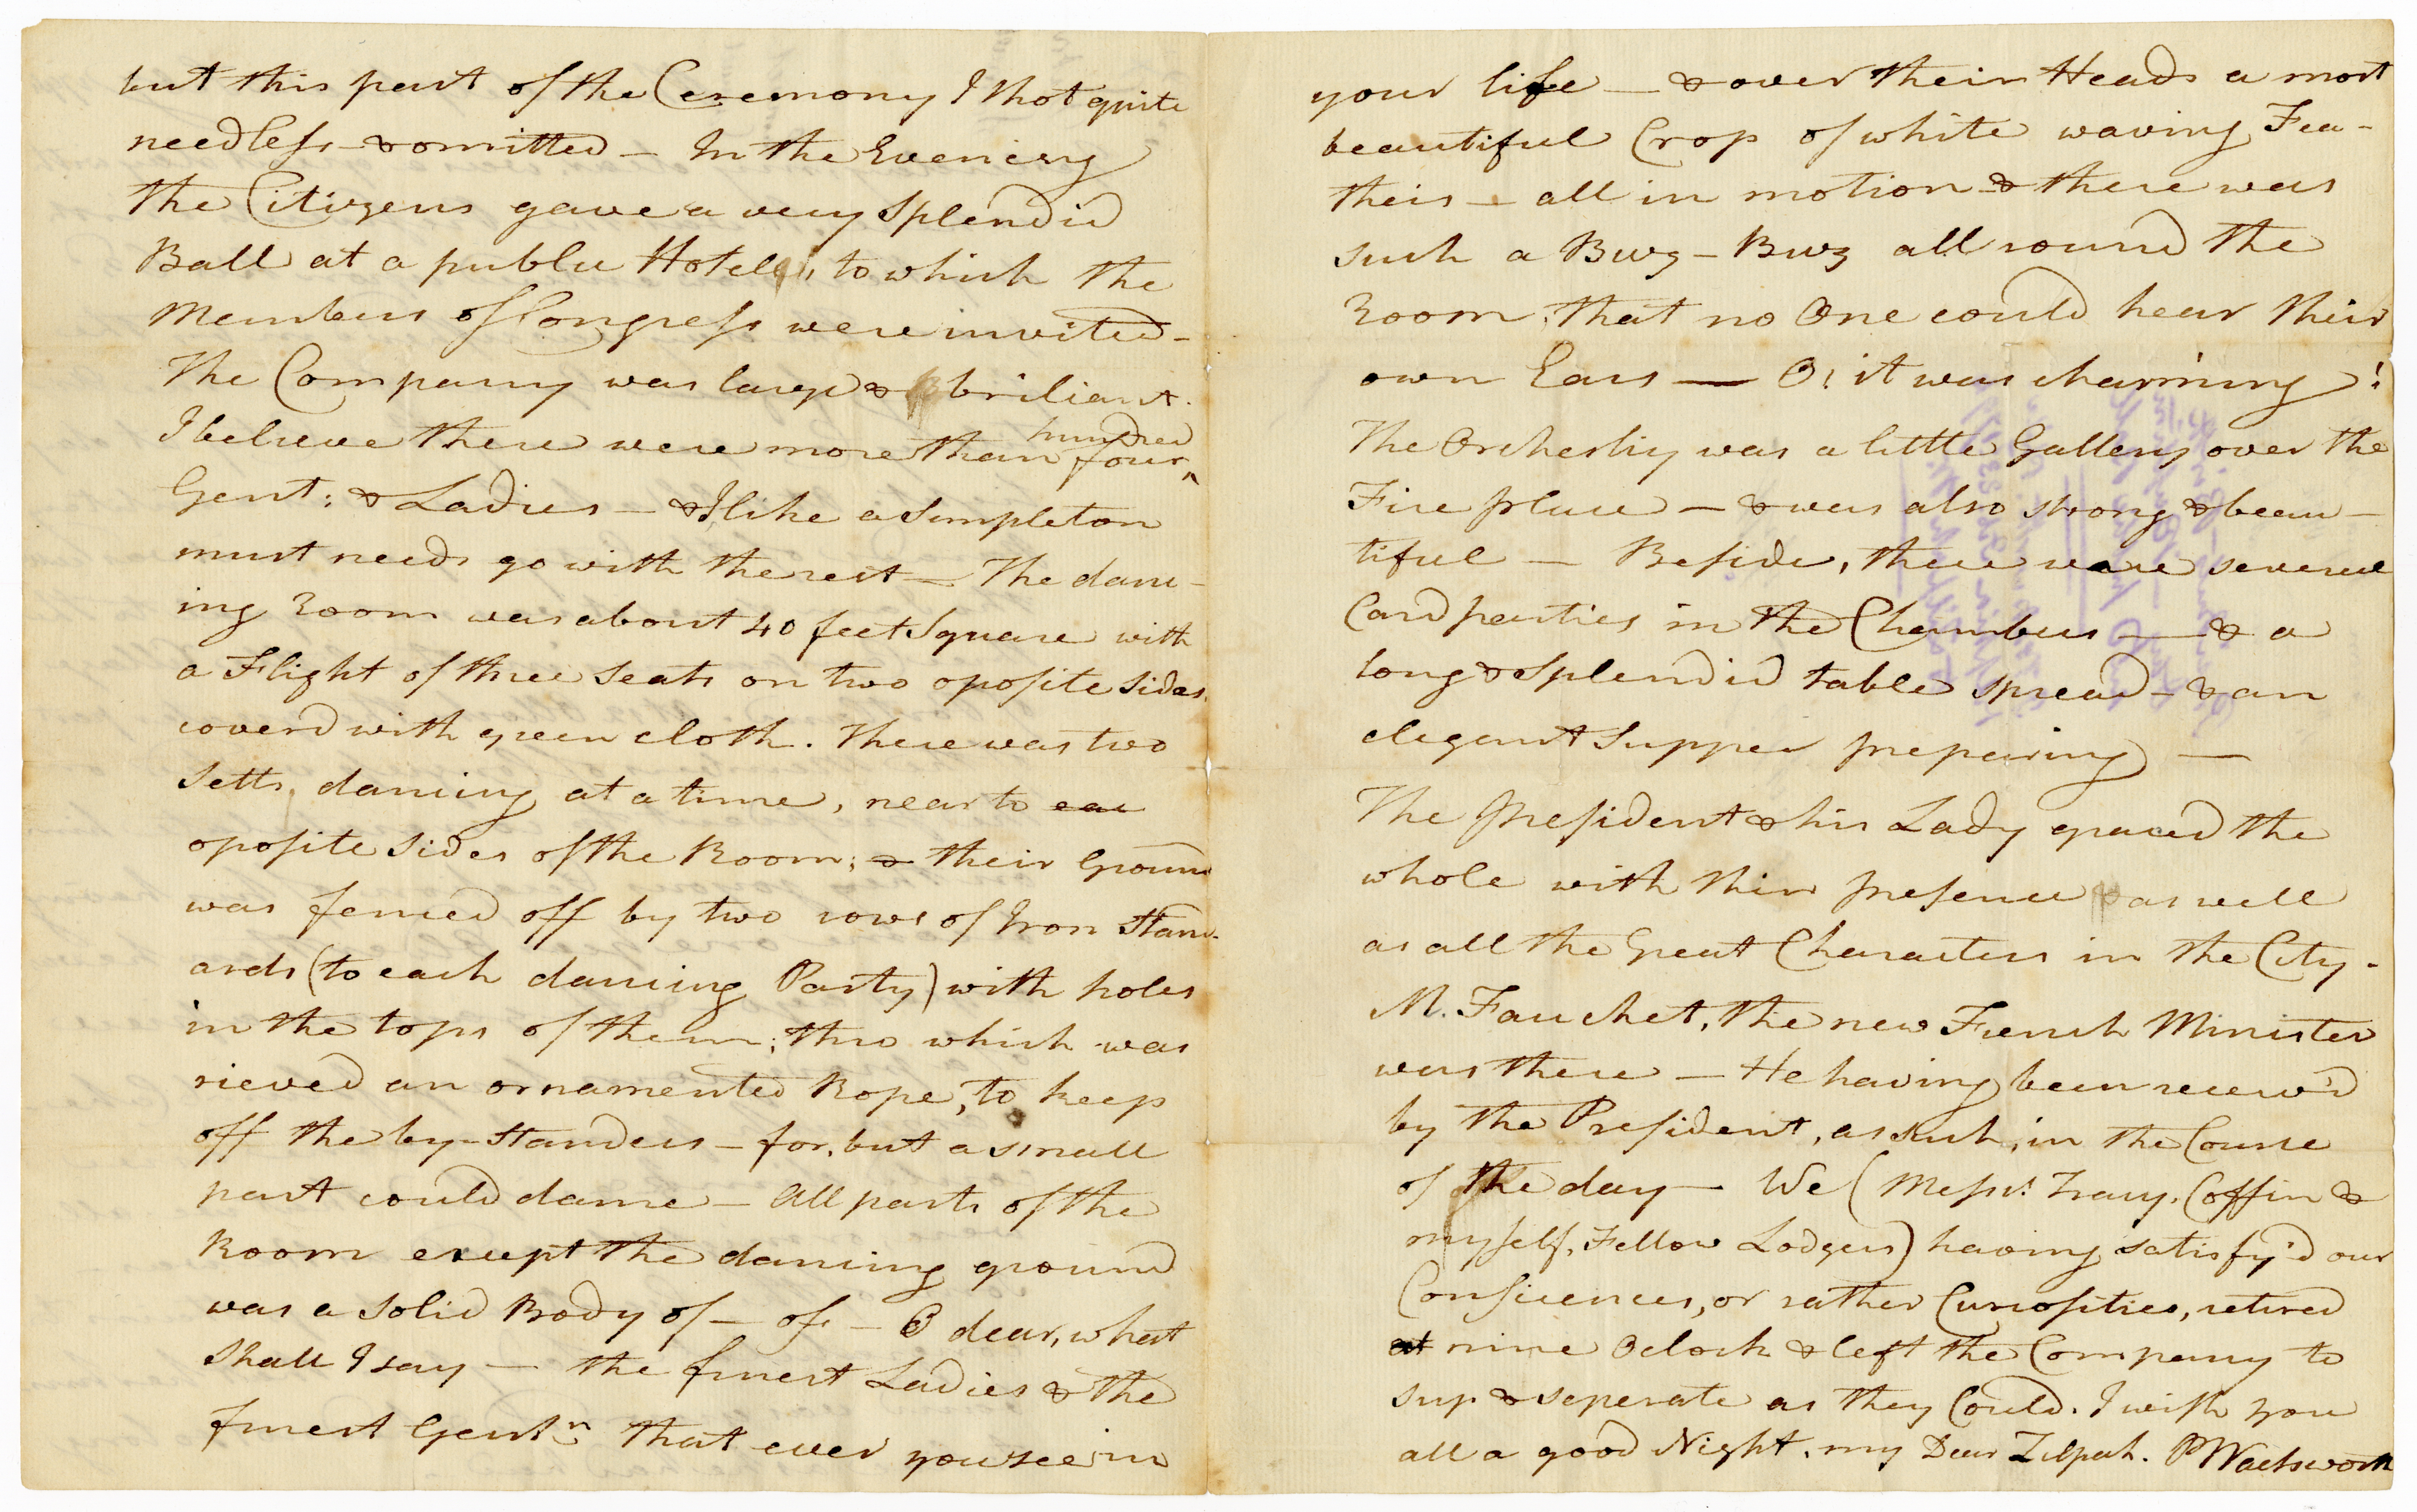 but this part of the Ceremony I thot quite
needless & omitted — In the Evening
the Citizens gave a very splendid
Ball at a public Hotell, to which the
Members of Congress were invited —
The Company was large & briliant.
I believe there were more than four hundred
Gent: & Ladies — & I like a simpleton
must needs go with the rest — The danc-
ing Room was about 40 feet square with
a Flight of three seats on two oposite sides,
coverd with green cloth. There was two
setts, dancing at a time, near to eac
oposite sides of the Room; & their Ground
was fenced off by two rows of Iron Stand-
ards (to each dancing Party) with holes
in the tops of them; thro which was
rieved an ornamented Rope, to keep
off the by-standers — for, but a small
part could dance — All parts of the
Room except the dancing ground
was a solid Body of — of — O dear, what
shall I say — the finest Ladies & the
finest Gentn that ever you see in
your life — & over their Heads a most
beautiful Crop of white waving Fea-
theis — all in motion & there was
such a Buz – Buz all round the
Room, that no One could hear their
own Ears — O! it was charming!
The Orchestry was a little Gallery over the
Fire place — & was also strong & beau-
tiful — Beside, there were several
Card parties in the Chambers — & a
long & splendid table spread — & an
elegant supper preparing —
The President & his Lady graced the
whole with their presence as well
as all the Great Characters in the City.
M. Fauchet, the new French Minister
was there — He having been receiv'd
by the President, as such, in the Course
of the day — We (Messrs. Tracy, Coffin &
myself, Fellow Lodgers) having satisfy'd our
Consciences, or rather Curiosities, retired
at nine Oclock & left the Company to
sup & seperate as they Could. I wish you
all a good Night, my Dear Zilpah. PWadsworth